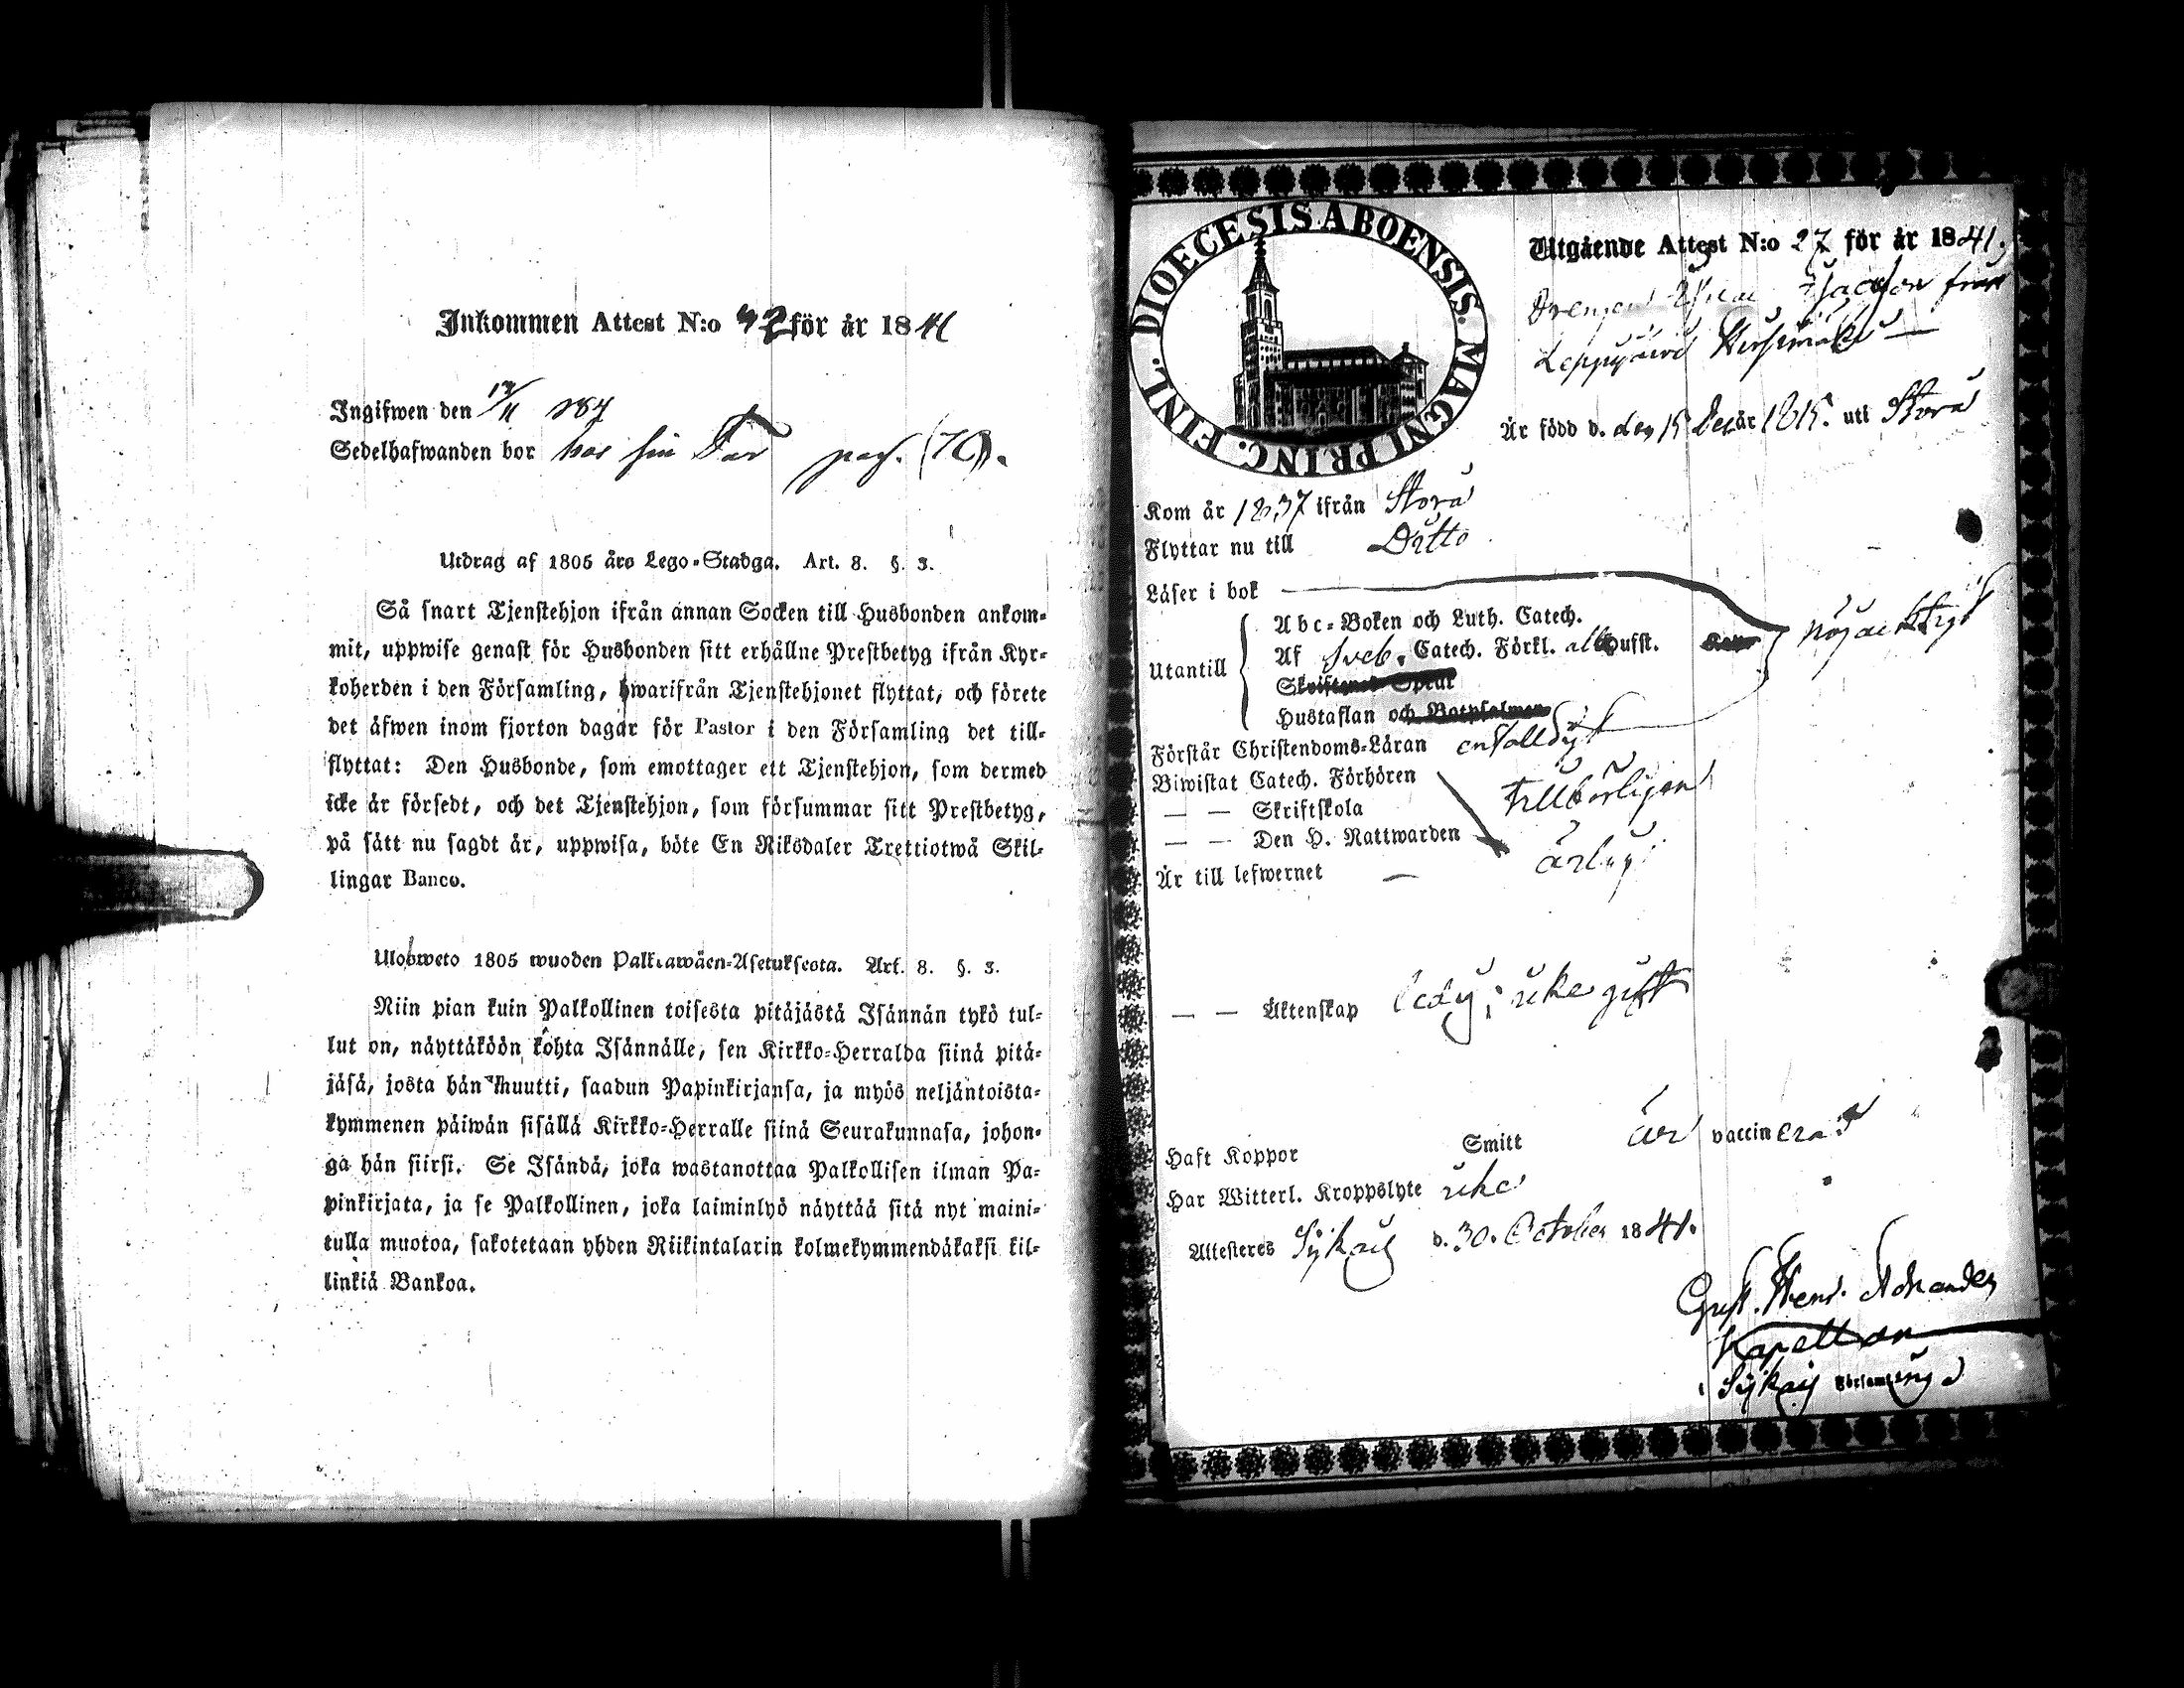 Inkommen Attest N:o 32 för år 1841
Ingifwen den 14/11 1841
Sedelhafwanden bor hos sin Far pag. (70).
Utdrag af 1805 års Lego-Stadga. Art. 8. §. 3.
Så snart Tjenstehjon ifrån annan Socken till Husbonden ankom-
mit, uppwise genast för Husbonden sitt erhållne Prestbetyg ifrån Kyr-
koherden i den Församling, hwarifrån Tjenstehjonet flyttat, och förete
det äfwen inom fjorton dagar för Pastor i den Församling det till-
flyttat: Den Husbonde, som emottager ett Tjenstehjon, som dermed
icke är försedt, och det Tjenstehjon, som försummar sitt Prestbetyg,
på sätt nu sagdt är, uppwisa, böte En Riksdaler Trettiotwå Skil-
lingar Banco.
Ulosweto 1805 wuoden Palkkawäen-Asetuksesta. Art. 8. §. 3.
Niin pian kuin Palkollinen toisesta pitäjästä Isännän tykö tul-
lut on, näyttäköön kohta Isännälle, sen Kirkko-Herralda siinä pitä-
jäsä, josta hän muutti, saadun Papinkirjansa, ja myös neljäntoista-
kymmenen päiwän sisällä Kirkko-Herralle siinä Seurakunnasa, johon-
ga hän siirsi. Se Isändä, joka wastanottaa Palkollisen ilman Pa-
pinkirjata, ja se Palkollinen, joka laiminlyö näyttää sitä nyt maini-
tulla muotoa, sakotetaan yhden Riikintalarin kolmekymmendäkaksi kil-
linkiä Bankoa.
DIOECESIS ABOENSIS. MAGNI PRINC. FINL.
Utgående Attest N:o 27 för år 1841.
Drengen Isacsson från
Leppäjärvi
Är född d. den 15 Dec. år 1815. uti Storå
Kom år 1837 ifrån Storå
Flyttar nu till Ditto
Läser i bok
Utantill
Abc-Boken och Luth. Catech.
Af Sveb. Catech. Förkl. alla Hufst. nöjacktigt
Skriftenes Språk
Hustaflan och Botpsalmen
Förstår Christendoms-Läran enfalldigt
Biwistat Catech. Förhören
— — Skriftskola tillbörligen
— — Den H. Nattwarden
Är till lefwernet — ärlig
— — Äktenskap ledig; icke gift
Haft Koppor Smitt är vaccinerad
Har Witterl. Kroppslyte icke
Attesteres Sijkais d. 30. October 1841.
Gust. Henr. Achander
Kapellan
i Sijkais Församling